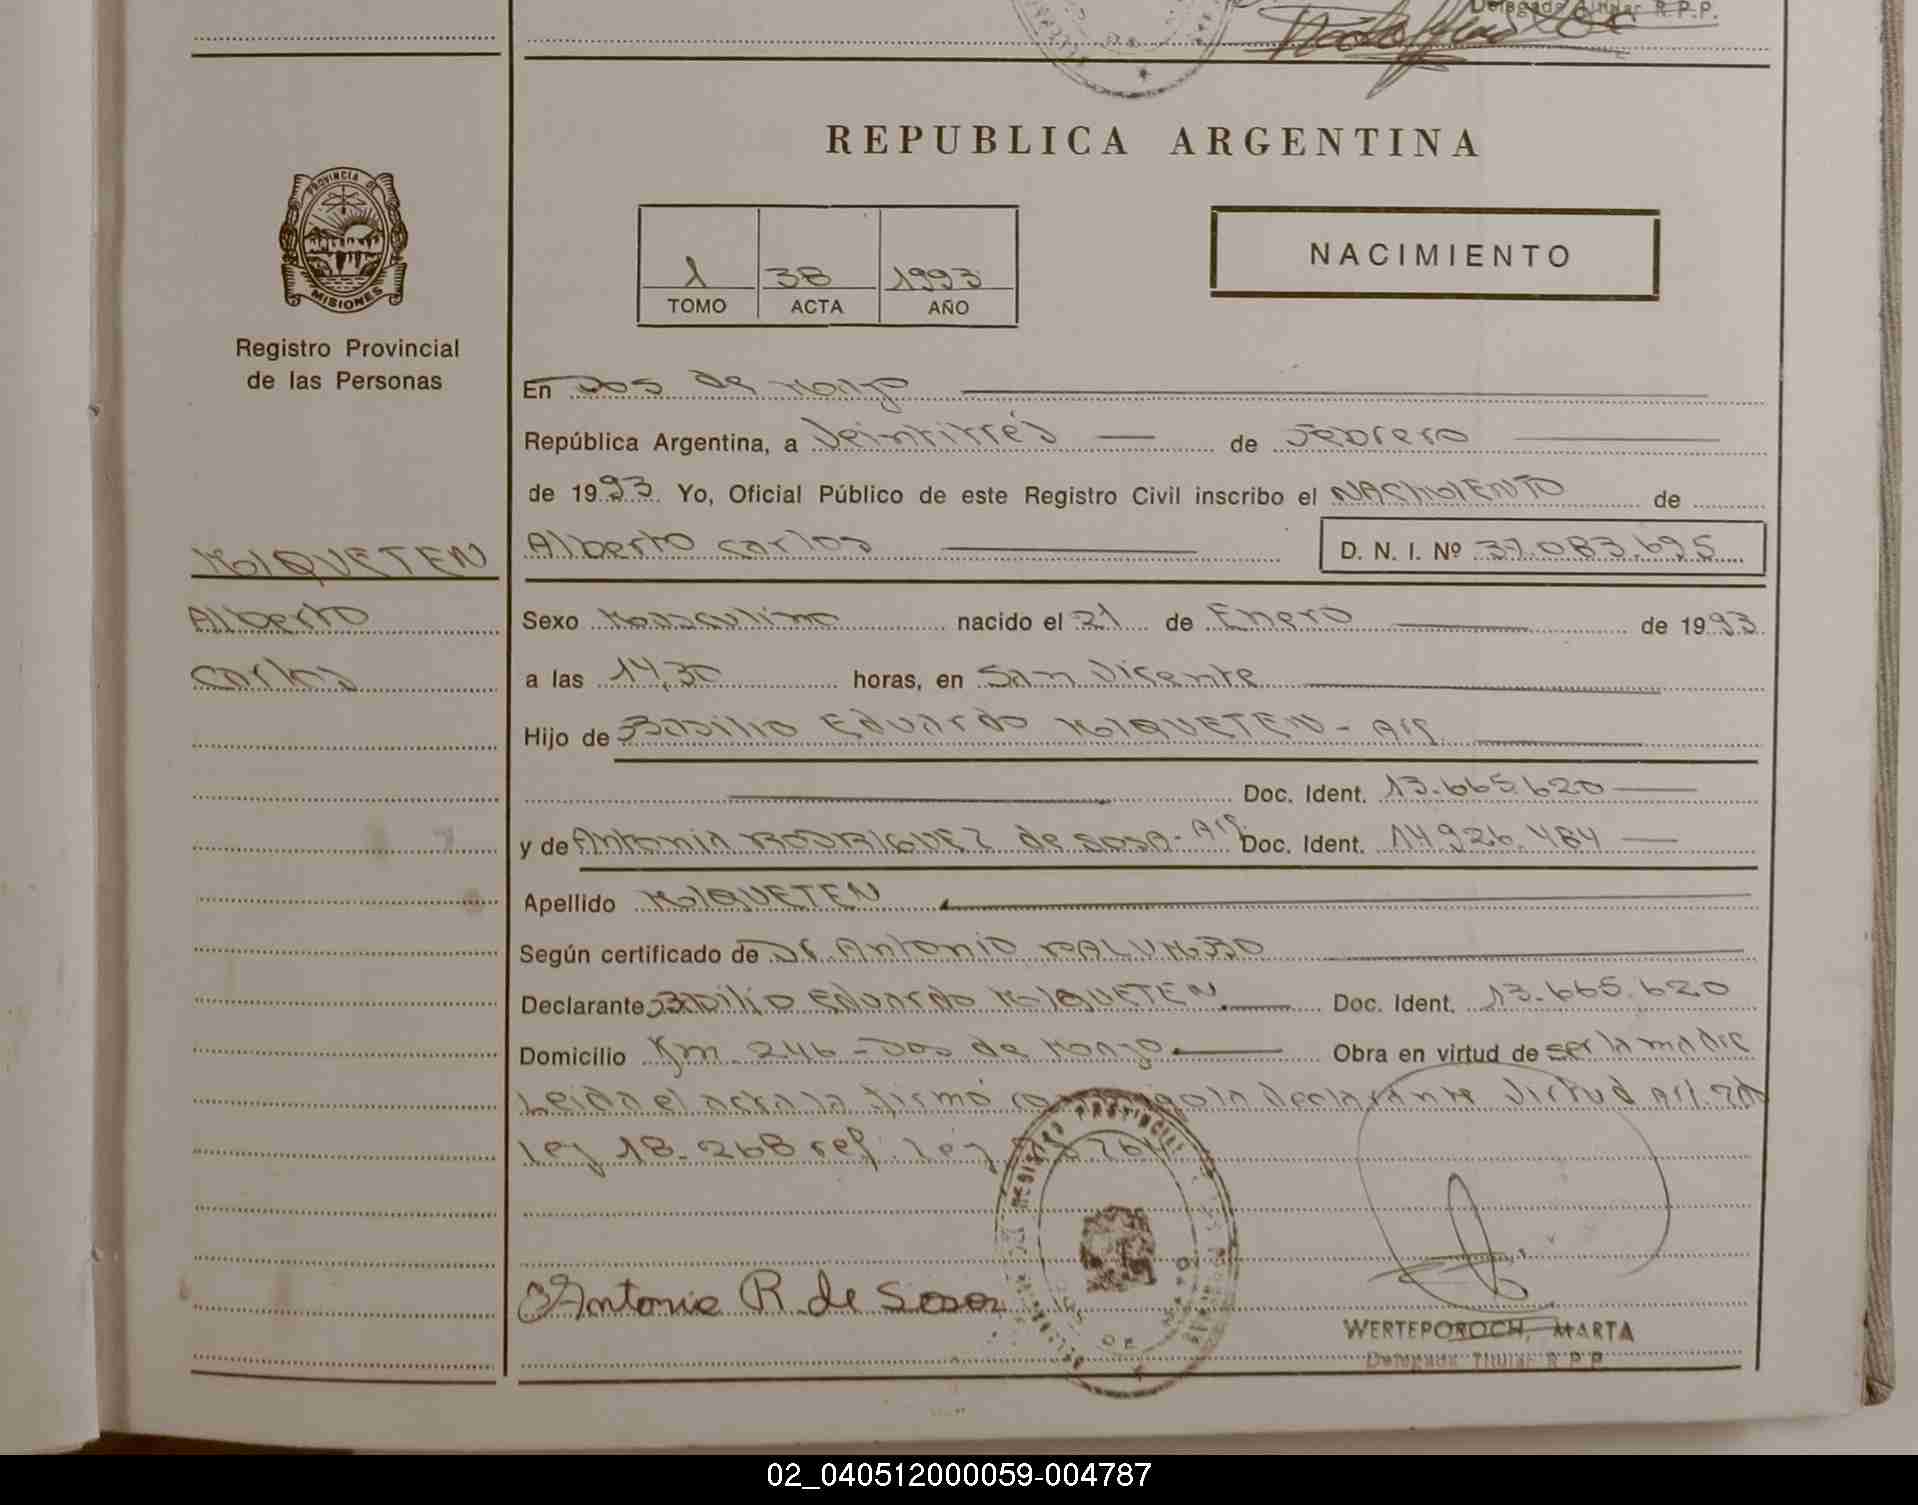 Delegado Titular R.P.P.
REPUBLICA ARGENTINA
PROVINCIA DE
MISIONES
Registro Provincial
de las Personas
1 38 1993
TOMO ACTA AÑO
NACIMIENTO
En Dos de Mayo
República Argentina, a Veintitrés de Febrero
de 1993. Yo, Oficial Público de este Registro Civil inscribo el NACIMIENTO de
Alberto Carlos D. N. I. Nº 37.083.695
MIQUETEN
Alberto
Carlos
Sexo Masculino nacido el 21 de Enero de 1993
a las 14,30 horas, en San Vicente
Hijo de Basilio Eduardo MIQUETEN - Arg.
Doc. Ident. 13.665.620
y de Antonia RODRIGUEZ de SOSA - Arg. Doc. Ident. 14.926.484
Apellido MIQUETEN
Según certificado de Dr. Antonio PALUMBO
Declarante Basilio Eduardo MIQUETEN Doc. Ident. 13.665.620
Domicilio Km. 246 - Dos de Mayo Obra en virtud de ser la madre
Leida el acta la firmó la declarante virtud Art.
Ley 18.268 ref. Ley
REGISTRO PROVINCIAL
Antonia R de Sosa
WERTEPOROCH, MARTA
Delegada Titular R.P.P.
02_040512000059-004787